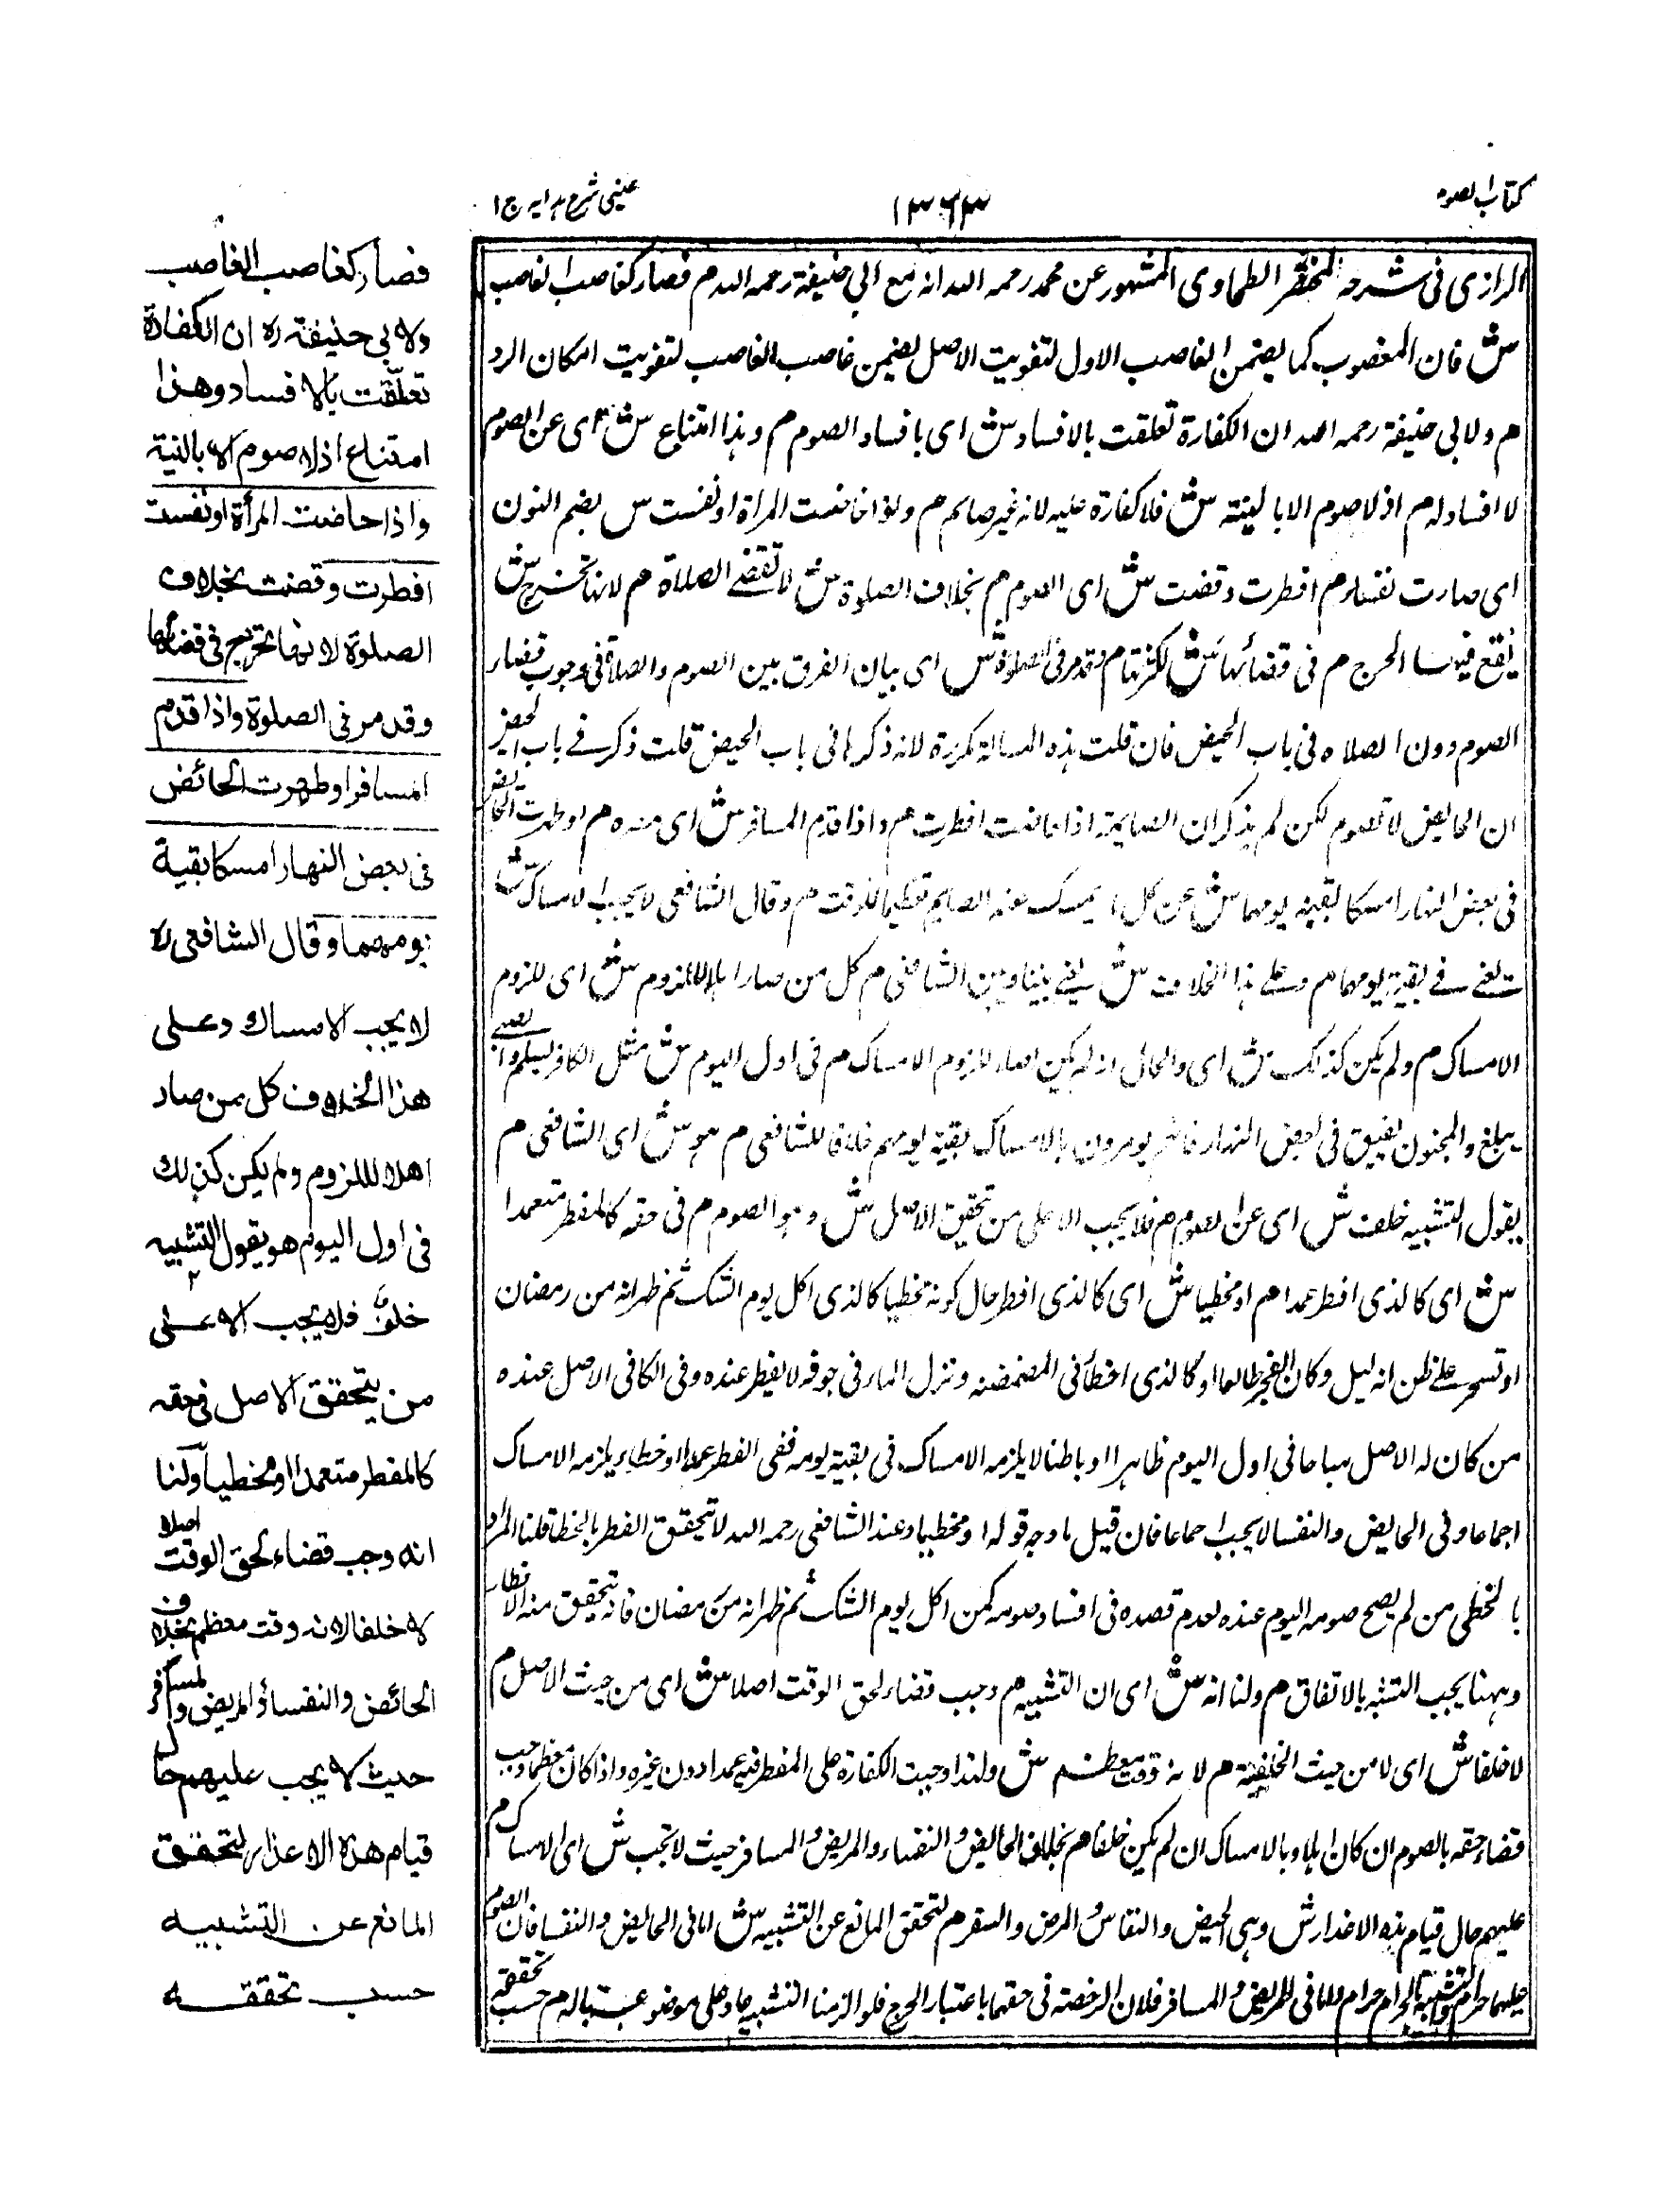 كتاب الصوم
١٣٦٣
عينى شرح هدايه ج ١
الرازى فى شرحه لمختصر الطحاوى المشهور عن محمد رحمه الله انه مع ابى حنيفة رحمه الله م فصار كغاصب الغاصب
ش فان المغصوب كما يضمن الغاصب الاول لتفويت الاصل يضمن غاصب الغاصب لتفويت امكان الرد
م ولابى حنيفة رحمه الله ان الكفارة تعلقت بالافساد ش اى بافساد الصوم م وهذا امتناع ش اى عن الصوم
لا افساد له م اذ لا صوم الا بالنية ش فلا كفارة عليه لانه غير صايم م واذا حاضت المرأة او نفست ش بضم النون
اى صارت نفساء م افطرت وقضت ش اى الصوم م بخلاف الصلوة ش لا تقضے الصلاة م لانها تحرج ش
يقع فيها الحرج م فى قضائها ش لكثرتها م وقد مر فى الصلوة ش اى بيان الفرق بين الصوم والصلاة فى وجوب قضاء
الصوم دون الصلاه فى باب الحيض فان قلت هذه المسالة مكررة لانه ذكرها فى باب الحيض قلت ذكر فے باب الحيض
ان الحايض لا تصوم لكن لم يذكر ان الصايمة اذا حاضت افطرت م واذا قدم المسافر ش اى مصره م او طهرت الحايض
فى بعض النهار امسكا بقية يومهما ش عن كل ما يمسك عنه الصايم تعظيما للوقت م وقال الشافعى لا يجب الامساك ش
يعنے فے بقية يومهما م وعلے هذا الخلاف ش يعنے بيننا وبين الشافعى م كل من صار اهلا للزوم ش اى للزوم
الامساك م ولم يكن كذلك ش اى والحال انه لم يكن اهلا للزوم الامساك م فى اول اليوم ش مثل الكافر يسلم والصبے
يبلغ والمجنون يفيق فى بعض النهار فانهم يومرون بالامساك بقية يومهم خلافا للشافعى م هو ش اى الشافعى م
يقول التشبيه خلف ش اى عن الصوم م فلا يجب الا على من تحقق الاصل ش وهو الصوم م فى حقه كالمفطر متعمدا
ش اى كالذى افطر عمدا م او مخطيا ش اى كالذى افطر حال كونه مخطيا كالذى اكل يوم الشك ثم ظهر انه من رمضان
او تسحر علے ظن انه ليل وكان الفجر طالعا او كالذى اخطأ فى المضمضة ونزل الماء فى جوفه لا يفطر عنده وفى الكافى الاصل عنده
من كان له الاصل مباحا فى اول اليوم ظاهرا او باطنا لا يلزمه الامساك فى بقية يومه ففى الفطر عمدا او خطاء يلزمه الامساك
اجماعا وفى الحايض والنفسا لا يجب اجماعا فان قيل ما وجه قوله او مخطيا وعند الشافعى رحمه الله لا تحقق الفطر بالخطا قلنا المراد
بالمخطى من لم يصح صومه اليوم عنده لعدم قصده فى افساد صومه كمن اكل يوم الشك ثم ظهر انه من رمضان فانه تحقق منه الافطار
وههنا يجب التشبه بالاتفاق م ولنا انه ش اى ان التشبيه م وجب قضاء لحق الوقت اصلا ش اى من حيث الاصل م
لا خلفا ش اى لا من حيث الخلفية م لانه وقت معظم ش ولهذا وجبت الكفارة على المفطر فيه عمدا دون غيره واذا كان معظما وجب
قضاء حقه بالصوم ان كان اهلا وبالامساك ان لم يكن خلفا م بخلاف الحائض والنفساء والمريض والمسافر حيث لا تجب ش اى الامساك م
عليهم حال قيام هذه الاعذار ش وهى الحيض والنفاس والمرض والسفر م لتحقق المانع عن التشبيه ش اما فى الحايض والنفسا فان الصوم
عليهما حرام والتشبيه بالحرام حرام واما فى المريض والمسافر فلان الرخصة فى حقهما باعتبار الحرج فلو الزمنا التشبيه عاد على موضوعه بالـ م حسب تحققه
فصار كغاصب الغاصب
ولابى حنيفة ره ان الكفارة
تعلقت بالافساد وهذا
امتناع اذ لا صوم الا بالنية
واذا حاضت المرأة او نفست
افطرت وقضت بخلاف
الصلوة لانها تحرج فى قضائها
وقد مر فى الصلوة واذا قدم
المسافر او طهرت الحائض
فى بعض النهار امسكا بقية
يومهما وقال الشافعى لا
لا يجب الامساك وعلى
هذا الخلاف كل من صار
اهلا للزوم ولم يكن كذلك
فى اول اليوم هو يقول التشبيه
خلف فلا يجب الا على
من يتحقق الاصل فى حقه
كالمفطر متعمدا او مخطيا ولنا
انه وجب قضاء لحق الوقت اصلا
لا خلفا لانه وقت معظم بخلاف
الحائض والنفساء والمريض والمسافر
حيث لا يجب عليهم حال
قيام هذه الاعذار لتحقق
المانع عن التشبيه
حسب تحققه